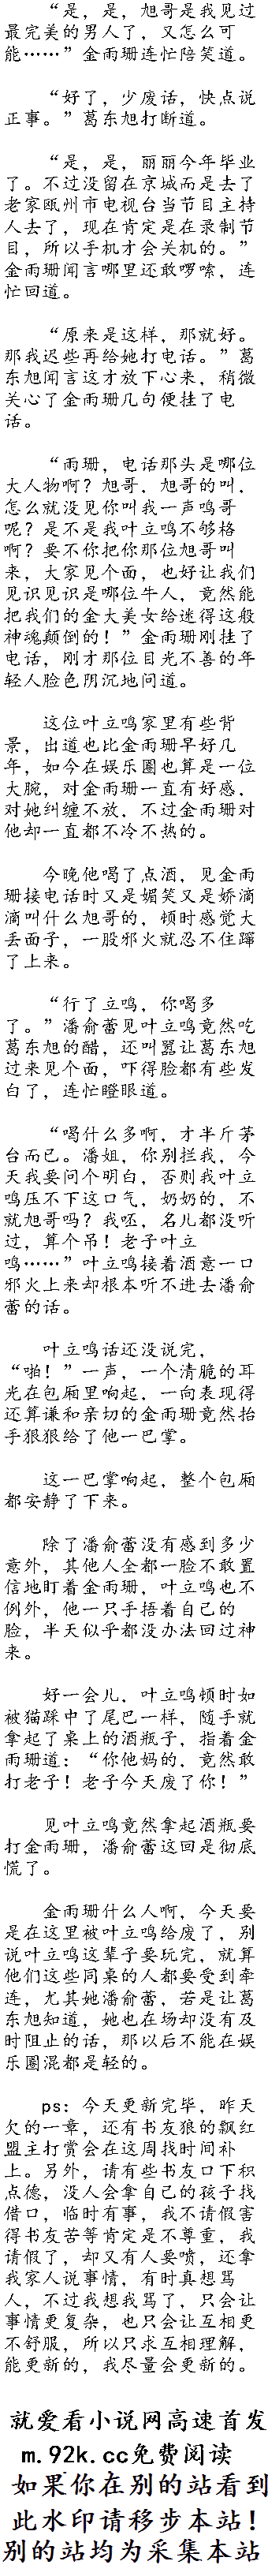 “是，是，旭哥是我见过
最完美的男人了，又怎么可
能……”金雨珊连忙陪笑道。
“好了，少废话，快点说
正事。”葛东旭打断道。
“是，是，丽丽今年毕业
了。不过没留在京城而是去了
老家瓯州市电视台当节目主持
人去了，现在肯定是在录制节
目，所以手机才会关机的。”
金雨珊闻言哪里还敢啰嗦，连
忙回道。
“原来是这样，那就好。
那我迟些再给她打电话。”葛
东旭闻言这才放下心来，稍微
关心了金雨珊几句便挂了电
话。
“雨珊，电话那头是哪位
大人物啊？旭哥，旭哥的叫，
怎么就没见你叫我一声鸣哥
呢？是不是我叶立鸣不够格
啊？要不你把你那位旭哥叫
来，大家见个面，也好让我们
见识见识是哪位牛人，竟然能
把我们的金大美女给迷得这般
神魂颠倒的！”金雨珊刚挂了
电话，刚才那位目光不善的年
轻人脸色阴沉地问道。
这位叶立鸣家里有些背
景，出道也比金雨珊早好几
年，如今在娱乐圈也算是一位
大腕，对金雨珊一直有好感，
对她纠缠不放，不过金雨珊对
他却一直都不冷不热的。
今晚他喝了点酒，见金雨
珊接电话时又是媚笑又是娇滴
滴叫什么旭哥的，顿时感觉大
丢面子，一股邪火就忍不住蹿
了上来。
“行了立鸣，你喝多
了。”潘俞蕾见叶立鸣竟然吃
葛东旭的醋，还叫嚣让葛东旭
过来见个面，吓得脸都有些发
白了，连忙瞪眼道。
“喝什么多啊，才半斤茅
台而已。潘姐，你别拦我，今
天我要问个明白，否则我叶立
鸣压不下这口气，奶奶的，不
就旭哥吗？我呸，名儿都没听
过，算个吊！老子叶立
鸣……”叶立鸣接着酒意一口
邪火上来却根本听不进去潘俞
蕾的话。
叶立鸣话还没说完，
“啪！”一声，一个清脆的耳
光在包厢里响起，一向表现得
还算谦和亲切的金雨珊竟然抬
手狠狠给了他一巴掌。
这一巴掌响起，整个包厢
都安静了下来。
除了潘俞蕾没有感到多少
意外，其他人全都一脸不敢置
信地盯着金雨珊，叶立鸣也不
例外，他一只手捂着自己的
脸，半天似乎都没办法回过神
来。
好一会儿，叶立鸣顿时如
被猫踩中了尾巴一样，随手就
拿起了桌上的酒瓶子，指着金
雨珊道：“你他妈的，竟然敢
打老子！老子今天废了你！”
见叶立鸣竟然拿起酒瓶要
打金雨珊，潘俞蕾这回是彻底
慌了。
金雨珊什么人啊，今天要
是在这里被叶立鸣给废了，别
说叶立鸣这辈子要玩完，就算
他们这些同桌的人都要受到牵
连，尤其她潘俞蕾，若是让葛
东旭知道，她也在场却没有及
时阻止的话，那以后不能在娱
乐圈混都是轻的。
ps：今天更新完毕，昨天
欠的一章，还有书友狼的飘红
盟主打赏会在这周找时间补
上。另外，请有些书友口下积
点德，没人会拿自己的孩子找
借口，临时有事，我不请假害
得书友苦等肯定是不尊重，我
请假了，却又有人要喷，还拿
我家人说事情，有时真想骂
人，不过我想我骂了，只会让
事情更复杂，也只会让互相更
不舒服，所以只求互相理解，
能更新的，我尽量会更新的。
就爱看小说网高速首发
m.92k.cc免费阅读
如果你在别的站看到
此水印请移步本站！
别的站均为采集本站